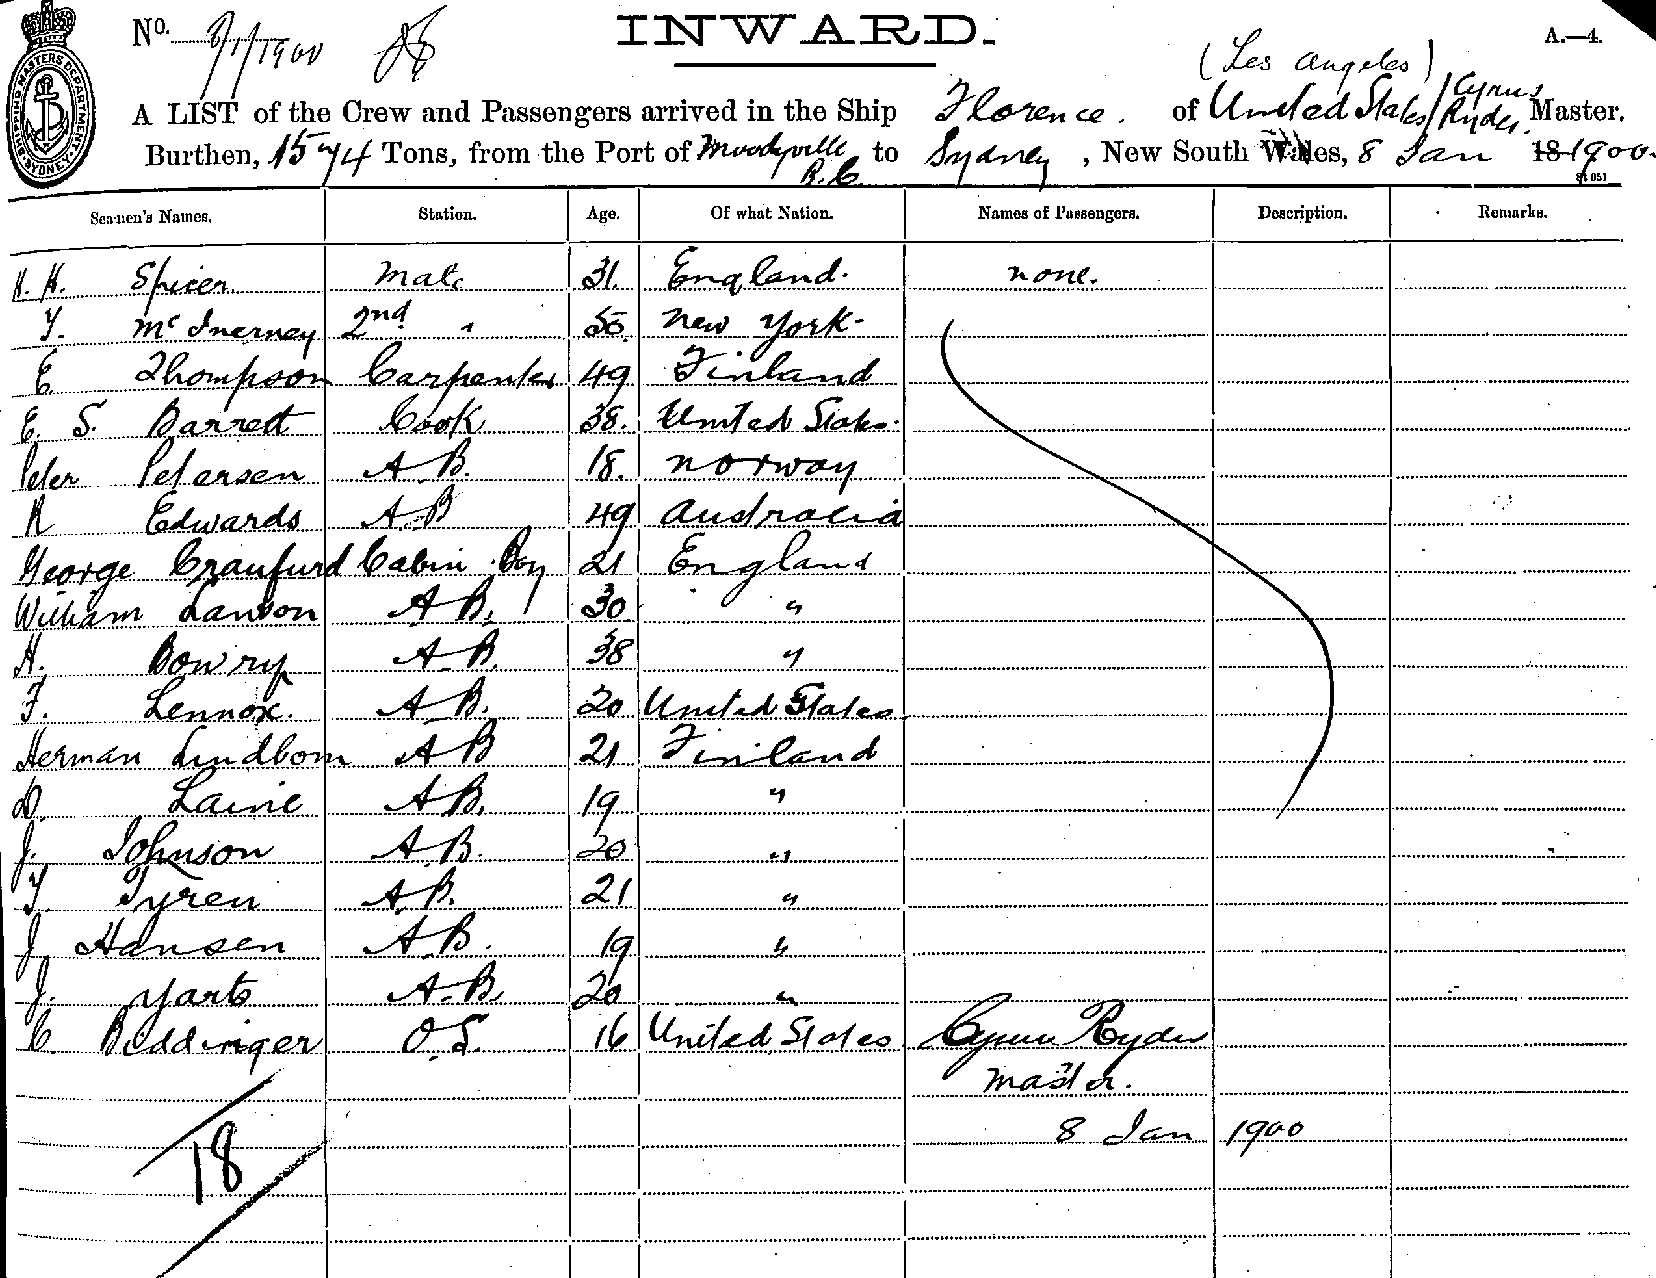 No. 8/1/1900
INWARD.
A.—4.
(Los Angeles)
A LIST of the Crew and Passengers arrived in the Ship Florence. of United States / Cyrus Ryder Master.
Burthen, 1574 Tons, from the Port of Moodyville B.C. to Sydney, New South Wales, 8 Jan 18 1900.
Seamen's Names. Station. Age. Of what Nation. Names of Passengers. Description. Remarks.
H. H. Spicer Mate 31. England. none.
T. McInerney 2nd " 50 New York.
E. Thompson Carpenter 49 Finland
E. S. Barrett Cook 38. United States.
Peter Petersen A.B. 18. Norway
R Edwards A.B 49 Australia
George Craufurd Cabin Boy 21 England
William Lanson A.B. 30 "
H. Bowry A.B. 38 "
F. Lennox. A.B. 20 United States
Herman Lindbom A B 21 Finland
D. Laine A.B. 19 "
J. Johnson A.B. 20 "
T. Tyren A.B. 21 "
J. Hansen A.B. 19 "
J. Yarts A.B. 20 "
C. Biddinger O.S. 16 United States Cyrus Ryder
Master.
8 Jan 1900
18